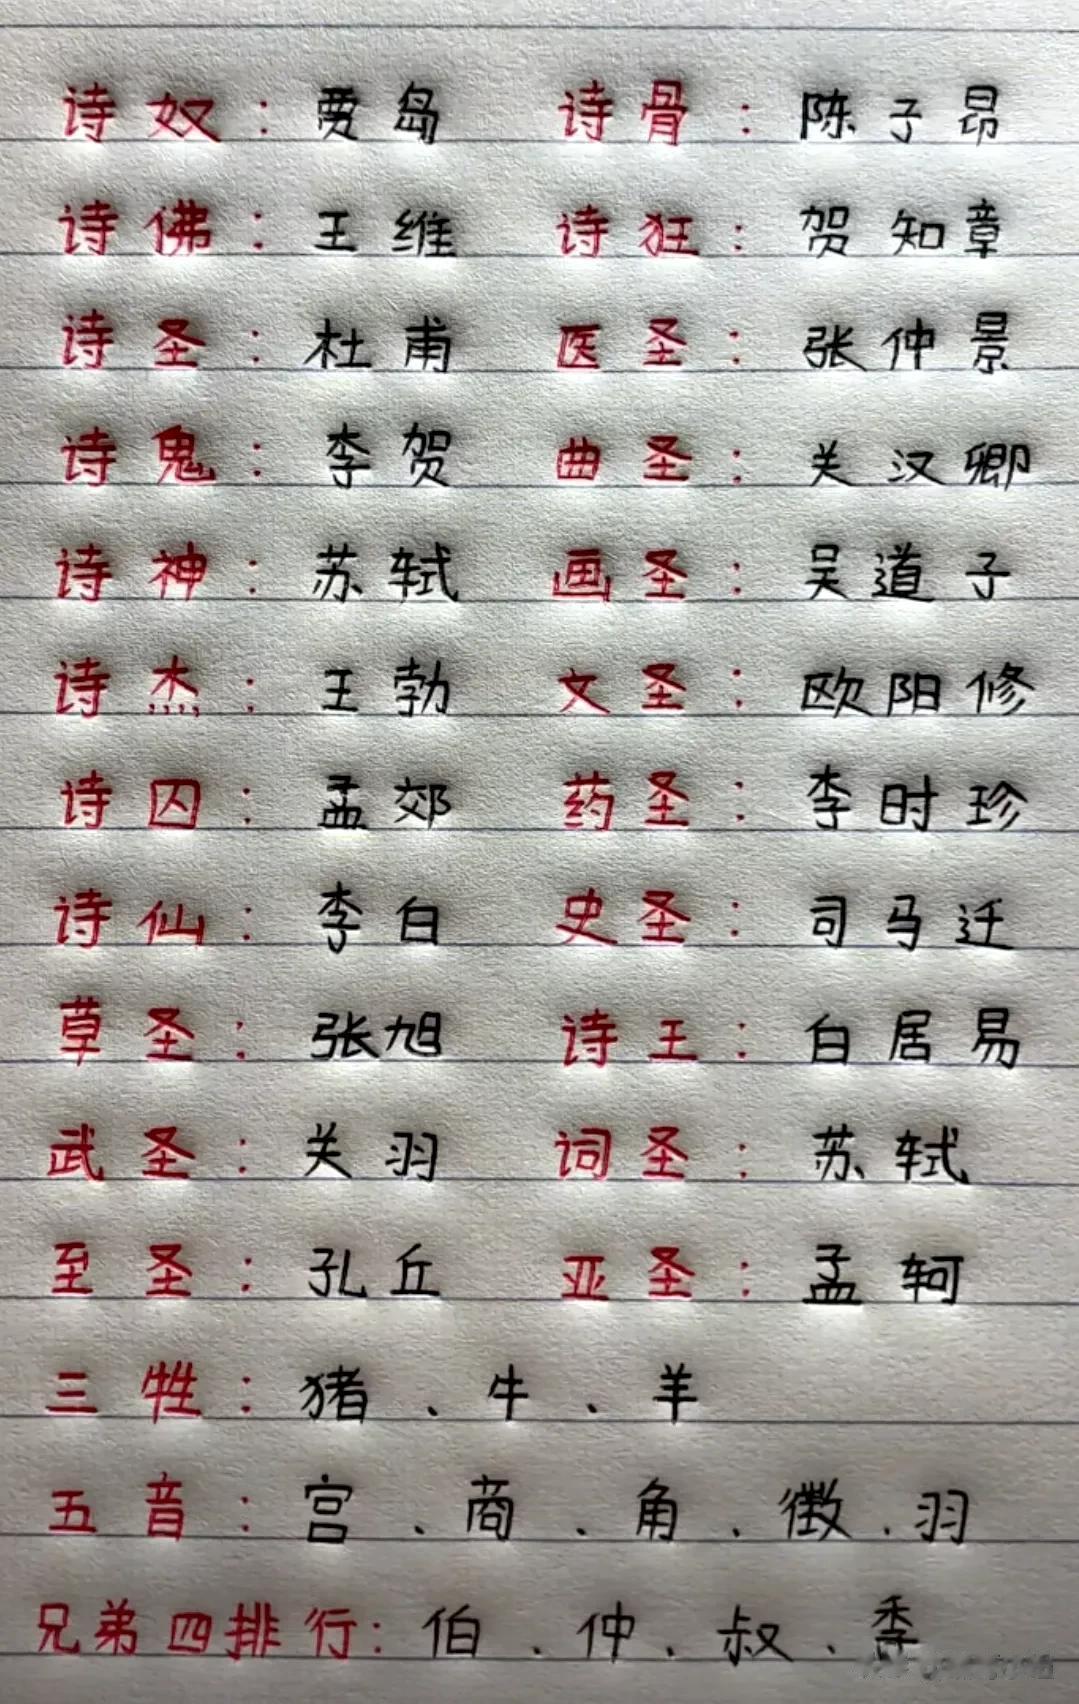 诗奴：贾岛 诗骨：陈子昂
诗佛：王维 诗狂：贺知章
诗圣：杜甫 医圣：张仲景
诗鬼：李贺 曲圣：关汉卿
诗神：苏轼 画圣：吴道子
诗杰：王勃 文圣：欧阳修
诗囚：孟郊 药圣：李时珍
诗仙：李白 史圣：司马迁
草圣：张旭 诗王：白居易
武圣：关羽 词圣：苏轼
至圣：孔丘 亚圣：孟轲
三牲：猪、牛、羊
五音：宫、商、角、徵、羽
兄弟四排行：伯、仲、叔、季